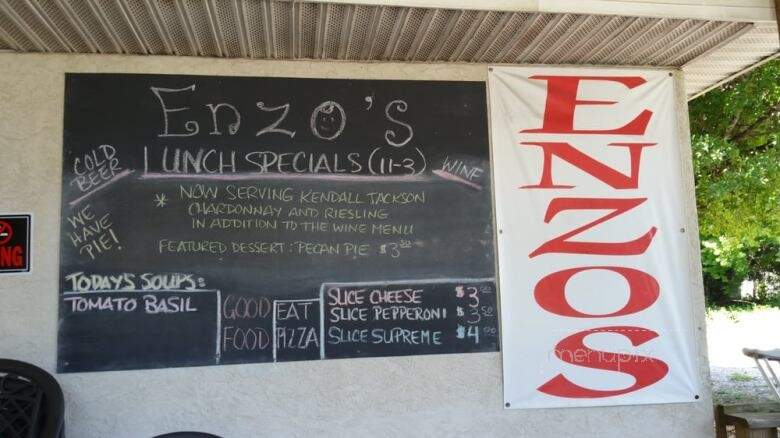 Enzo's
LUNCH SPECIALS (11-3)
COLD
BEER
WINE
WE
HAVE
PIE!
* NOW SERVING KENDALL JACKSON
CHARDONNAY AND RIESLING
IN ADDITION TO THE WINE MENU
FEATURED DESSERT: PECAN PIE $3.50
TODAY'S SOUPS:
TOMATO BASIL
GOOD
FOOD
EAT
PIZZA
SLICE CHEESE $3.00
SLICE PEPPERONI $3.50
SLICE SUPREME $4.00
ENZOS
menupix
NG